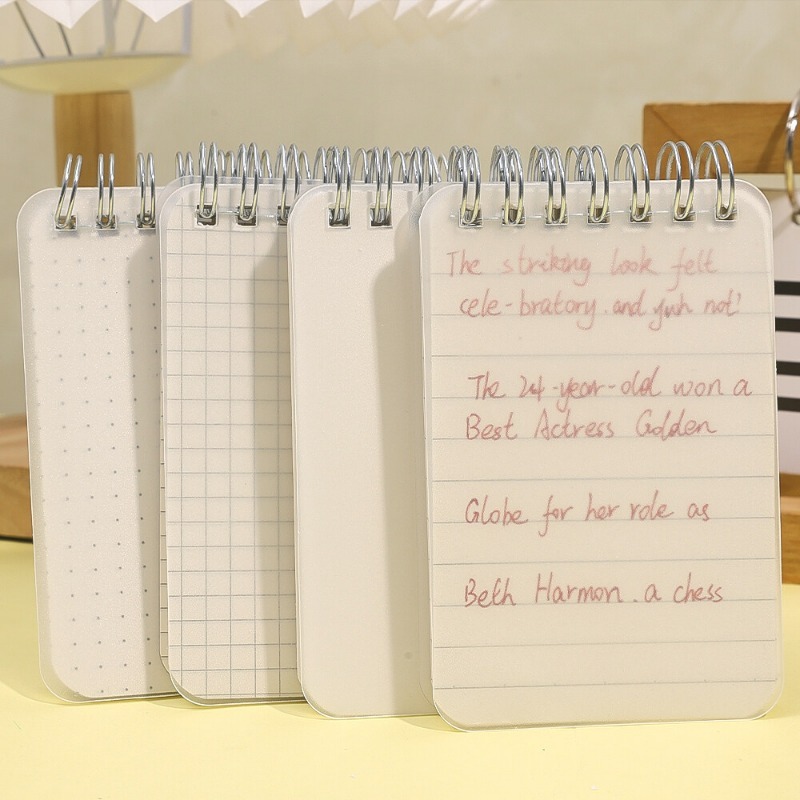 The striking look felt
cele-bratory. and not!
The 24-year-old won a
Best Actress Golden
Globe for her role as
Beth Harmon. a chess